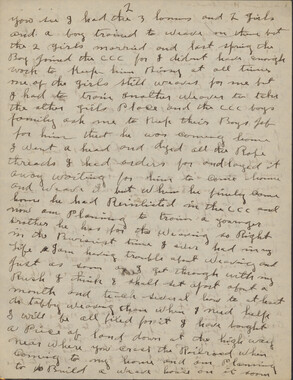 2
you see I had the 3 looms and 2 girls
and a boy trained to weave on them but
the 2 girls married and last spring the
Boy joined the CCC for I didnt have enough
work to keep him Buisy at all times
one of the girls still weaves for me but
I had to train another weaver to take
the other girls Place and the CCC boys
family ask me to keep their Boys job
for him that he was coming home
I went a head and dyed all the Rope
threads I had orders for and layed it
away waiting for him to come home
and weave it but when he finely come
home he had Reinlisted in the CCC and
now am Planing to train a younger
brother he has for the Weaving & Right
in the Buisiest time I ever had in my
Life & I am having trouble about Weaving and
just as soon as I get through with my
Rush I think I shall set apart about a
month and teach several how to at least
do tabby weaving then when I need help
I will be all fixed for it I have bought
a Piece of land down at the high way
near where you cross the Railroad when
coming to my home and am Planing
to Build a weave house on it soon